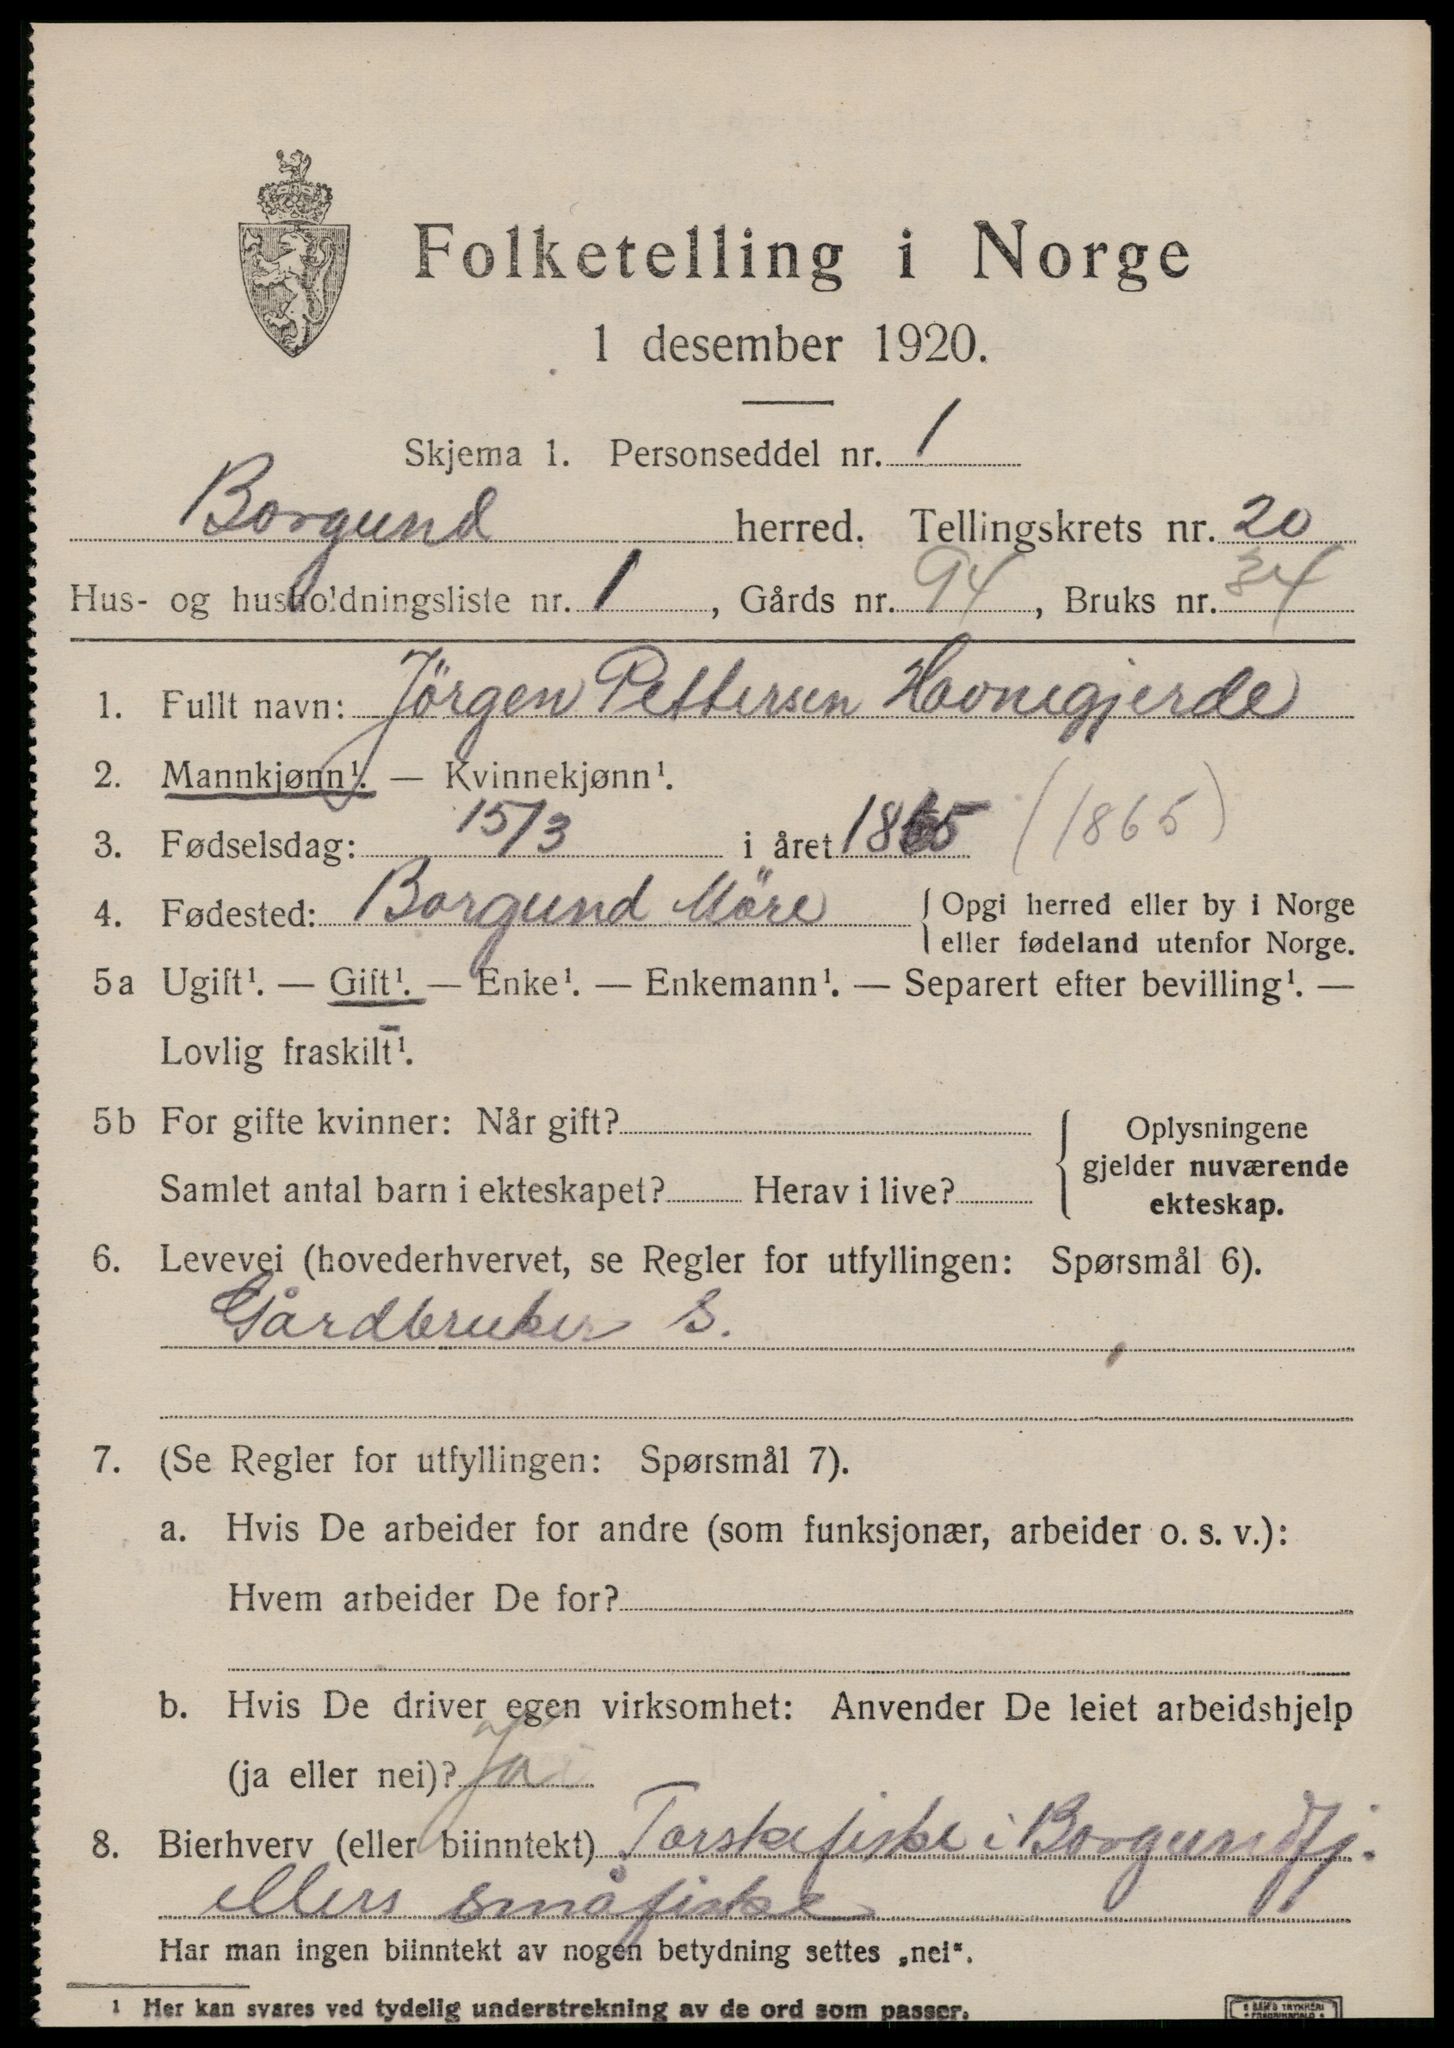 Folketelling i Norge
1 desember 1920.
Skjema 1. Personseddel nr. 1
Borgund herred. Tellingskrets nr. 20
Hus- og husholdningsliste nr. 1, Gårds nr. 94, Bruks nr. 34
1. Fullt navn: Jörgen Pettersen Havnegjerde
2. Mannkjønn¹. — Kvinnekjønn¹.
3. Fødselsdag: 15/3 i året 1865 (1865)
4. Fødested: Borgund Möre { Opgi herred eller by i Norge
eller fødeland utenfor Norge.
5a Ugift¹. — Gift¹. — Enke¹. — Enkemann¹. — Separert efter bevilling¹. —
Lovlig fraskilt¹.
5b For gifte kvinner: Når gift? { Oplysningene
gjelder nuværende
Samlet antal barn i ekteskapet? Herav i live? ekteskap.
6. Levevei (hovederhvervet, se Regler for utfyllingen: Spørsmål 6).
Gårdbruker S.
7. (Se Regler for utfyllingen: Spørsmål 7).
a. Hvis De arbeider for andre (som funksjonær, arbeider o. s. v.):
Hvem arbeider De for?
b. Hvis De driver egen virksomhet: Anvender De leiet arbeidshjelp
(ja eller nei)? Ja
8. Bierhverv (eller biinntekt) Torskefiske i Borgundfj.
ellers småfiske
Har man ingen biinntekt av nogen betydning settes „nei“.
¹ Her kan svares ved tydelig understrekning av de ord som passer.